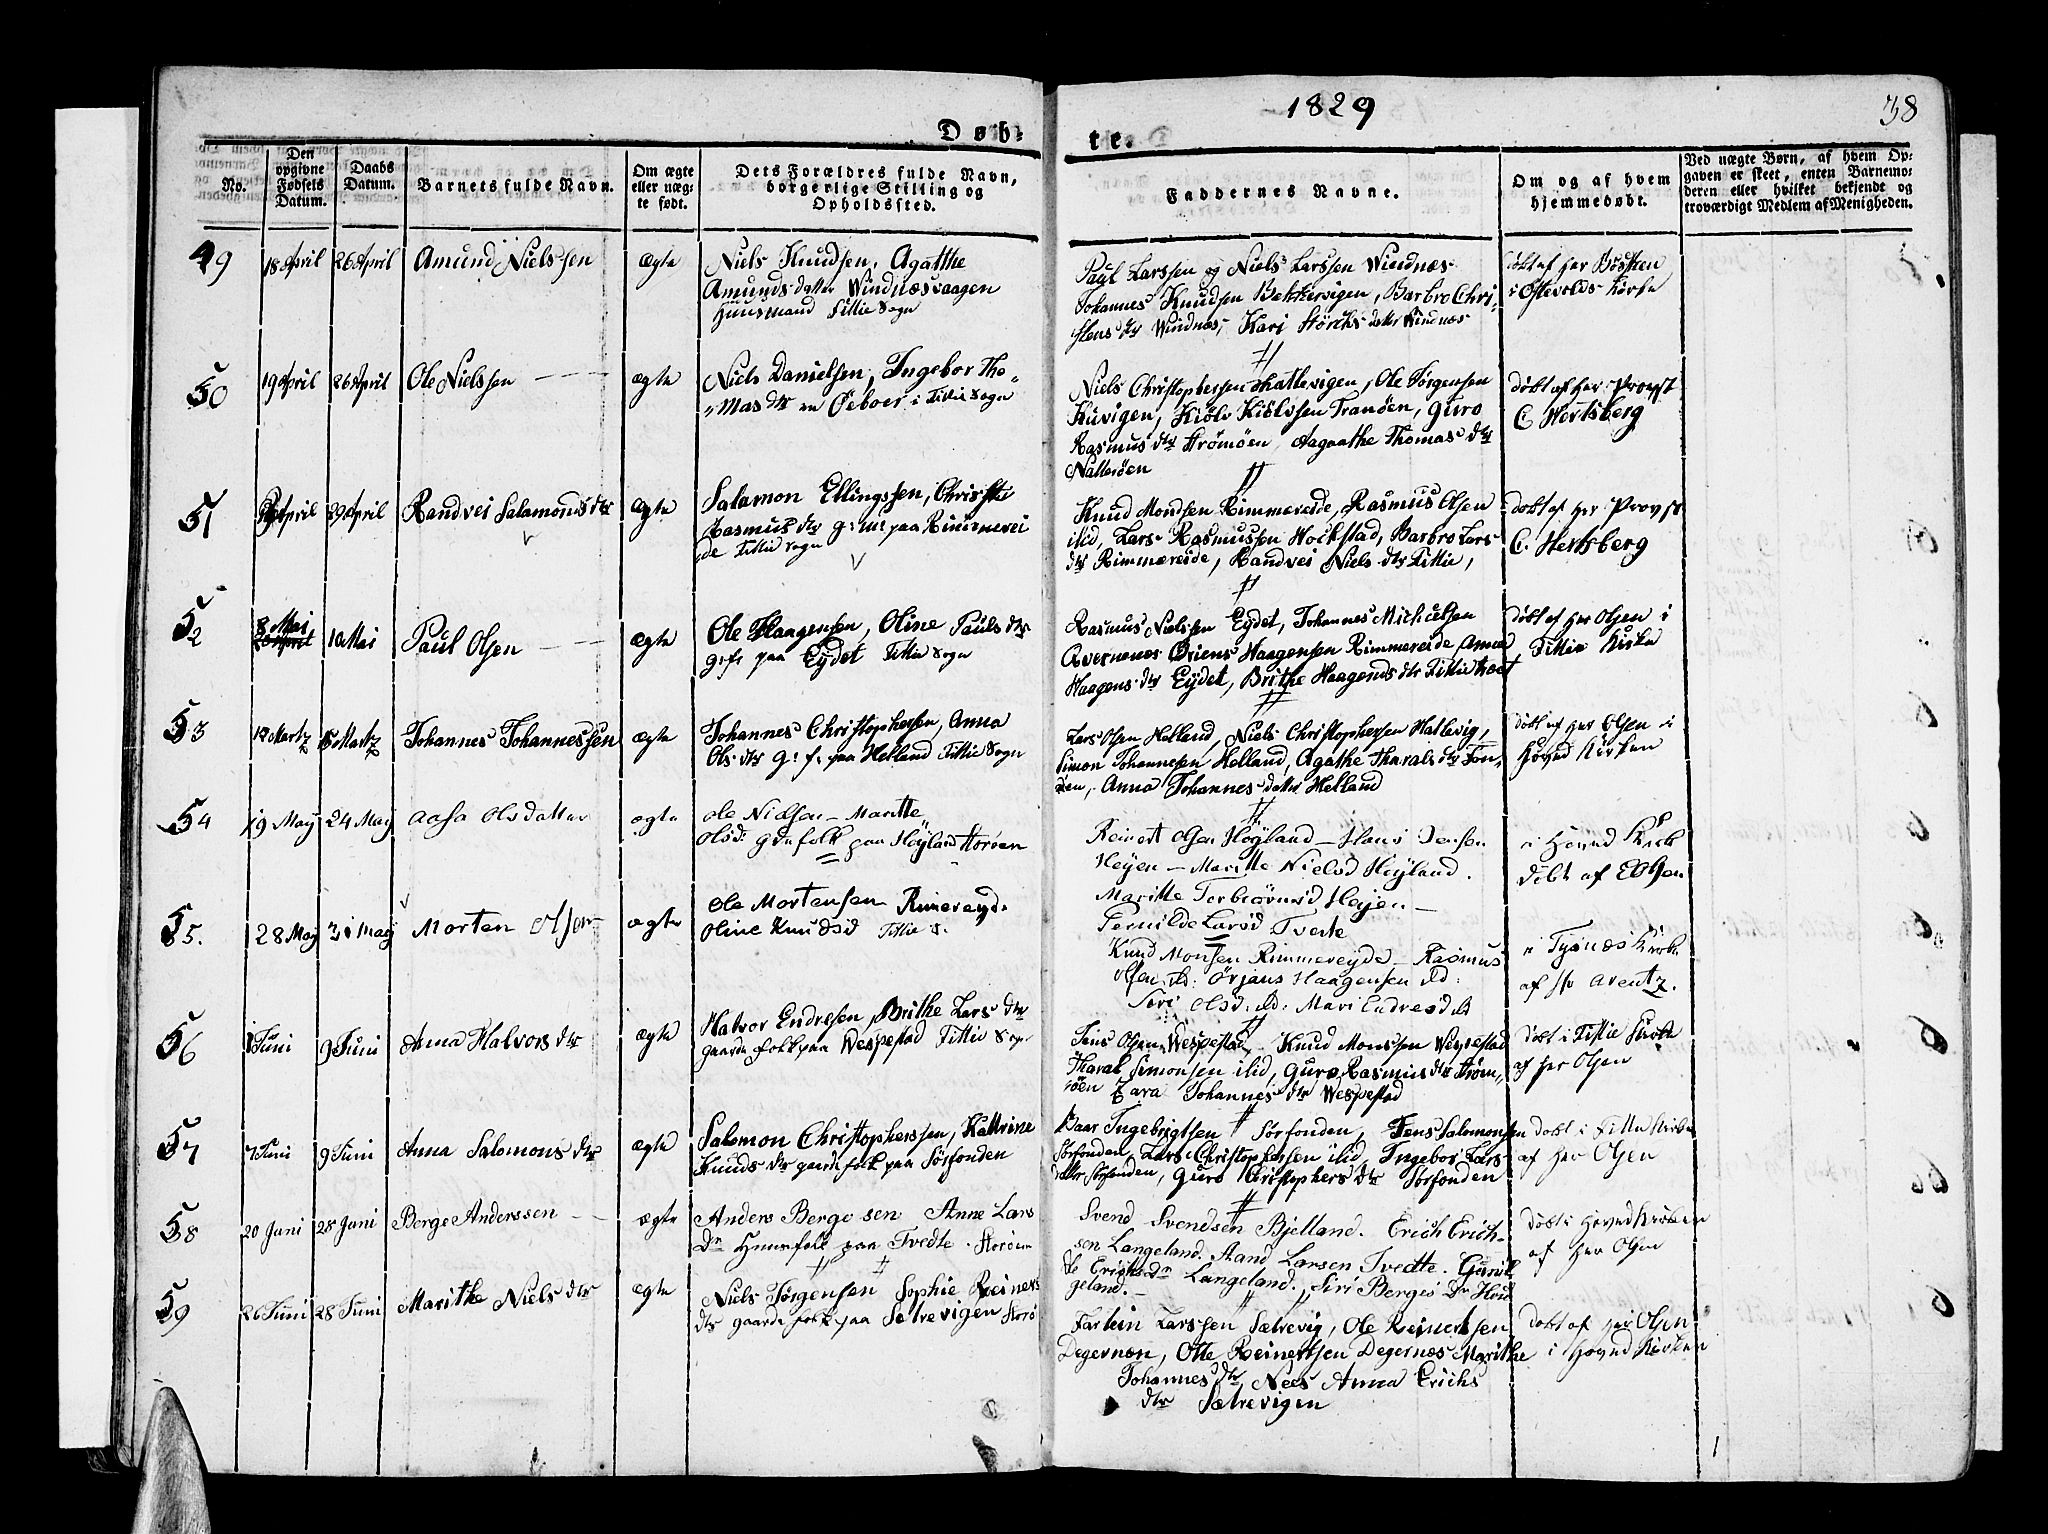 1829
38
Døb-
te.
No.
Den opgivne Fødsels Datum.
Daabs Datum.
Barnets fulde Navn.
Om ægte eller uægte født.
Dets Forældres fulde Navn, borgerlige Stilling og Opholdssted.
Faddernes Navne.
Om og af hvem hjemmedøbt.
Ved uægte Børn, af hvem Opgaven er skeet, enten Barnemoderen eller hvilket bekjendt og troværdigt Medlem af Menigheden.
49 18 April 26 April Amund Nielssen ægte
Niels Knudsen, Agathe
Amunds datter Windnæsvaagen
Huusmand Fittie Sogn
Paul Larssen og Niels Larssen Windnæs
Johannes Knudsen Bekkervigen, Barbro Chri-
stens dtr Windnæs, Kari Størchs datter Windnæs
døbt af Her
i Østevolds Kirke
50 19 April 26 April Ole Nielssen ægte
Niels Danielsen, Ingebor Tho-
mas dtr Fittie Sogn
Niels Christophersen Hatlevigen, Ole Jørgensen
Kuvigen, Kiölv Kiölvsen Tranöen, Guro
Rasmus dtr Strømöen, Aagaathe Thomas dtr
Natteröen
døbt af Her Provst
C. Hertsberg
51 April 29 April Randvei Salamons dtr ægte
Salamon Ellingssen, Christi
Rasmus dtr g: m: paa Rimmerei
de Fittie Sogn
Knud Mondsen Rimmereide, Rasmus Olsen
ilid, Lars Rasmussen Hockstad, Barbro Lars
dtr Rimmereide, Randvei Niels dtr Fittie,
døbt af Her Provst
C. Hertsberg
52 8 Mai 10 Mai Paul Olsen ægte
Ole Haagensen, Oline Pauls dtr
g: f: paa Eydet Fittie Sogn
Rasmus Nielssen Eydet, Johannes Michelsen
Haagensen Rimmereide, Anna
Haagens dtr Eydet, Brithe Haagens dtr
døbt af Her Olsen i
Fittie Kirke
53 12 Martz 15 Martz Johannes Johannessen ægte
Johannes Christophersen, Anna
Ols dtr g: f: paa Helland Fittie Sogn
Lars Olsen Helland, Niels Christophersen Hatlevig,
Simon Johannesen Helland, Agathe Tharals dtr Fon-
den, Anna Johannes datter Helland
døbt af Her Olsen i
Hoved Kirken
54 19 May 24 May Aasa Olsdatter ægte
Ole Nielsen - Maritte
Olsd: Grdfolk paa Höyland Storöen
Reinert Olsen Höyland - Hans Jensen
Heyen - Maritte Nielsd Heyland.
Maritte Torbiörnsd Heyen -
Pernilde Larsd Tvedte
i Hoved Kirk
döbt af Olsen
55. 28 May 31 May Morten Olsen ægte
Ole Mortensen Rimereyd.
Oline Knudsd Fittie S.
Knud Monsen Rimmereyde - Rasmus
Olsen ibd: Örjans Haagensen ibd:
Siri Olsd: ibd: Mari Endresd
i Tysnæs Kirke
af Hr Arentz.
56 Juni 9 Juni Anna Halvors dtr ægte
Halvor Endresen, Brithe Lars dtr
gaarde folk paa Wespestad Fittie Sogn
Jens Olsen Wespestad Knud Monssen Wespestad
Tharal Simonsen ilid, Guro Rasmus dtr Strøm-
öen Zara Johannes dtr Wespestad
döbt i Fittie Kirke
af Her Olsen
57 7 Juni 9 Juni Anna Salomons dtr ægte
Salomon Christopherssen, Kattrine
Knuds dtr gaarde folk paa Sörfonden
Baar Ingebrigtsen Sörfonden, Jens Salomonsen
Sörfonden, Lars Christophersen ilid, Ingebor Lars
datter Sörfonden, Guro Christophers dtr Sörfonden
döbt i Fittie Kirke
af Her Olsen
58 20 Juni 28 Juni Berge Anderssen ægte
Anders Bergesen Anne Lars
Dr Huusfolk paa Tvedte. Storöen
Svend Svendsen Bjelland. Erich Erich-
sen Langeland. Aand Larsen Tvedte. Gunil
de Erichs Dr Langeland. Siri Berges Dr
geland.
döbt i Hoved Kirken
af Her Olsen
59 26 Juni 28 Juni Marithe Niels dtr ægte
Niels Jörgensen Sophie Reiners
dtr gaarde folk paa Sætrevigen Storö
Fartein Larssen Sætrevig, Ole Reinertsen
Degernæs, Otte Reinertsen Degernæs Marithe
Johannes dtr Nees Anna Erichs
dtr Sætrevigen
döbt af Her Olsen
i Hoved Kirken